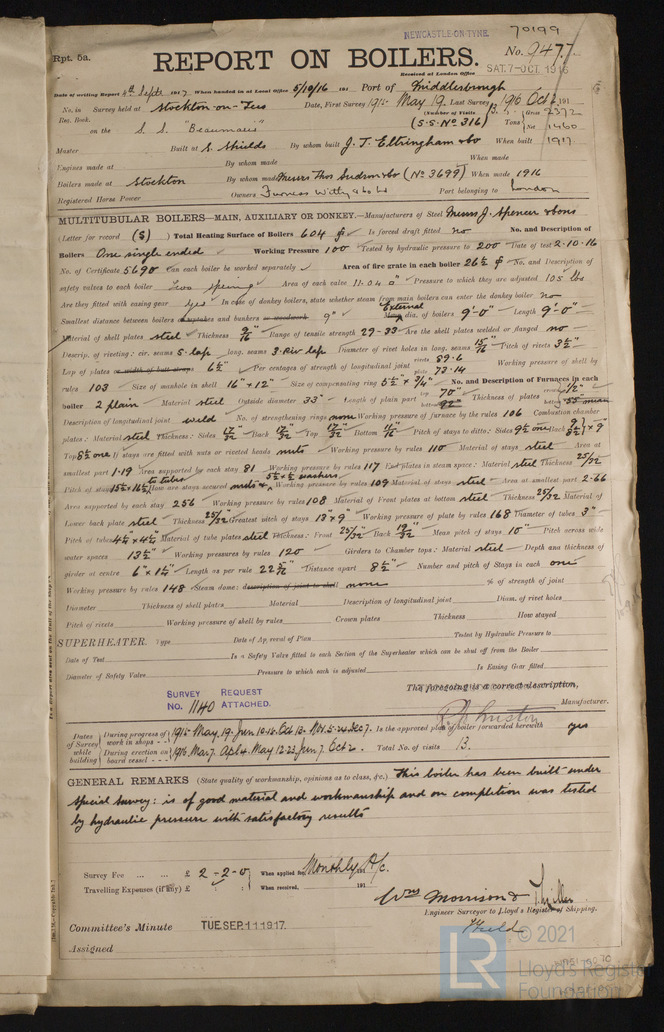 NEWCASTLE-ON-TYNE. 70199
Rpt. 5a.
REPORT ON BOILERS. No. 9477
Received at London Office SAT. 7-OCT. 1916
Date of writing Report 4th Septr 1917 When handed in at Local Office 5/10/16 191 Port of Middlesbrough
No. in Survey held at Stockton-on-Tees Date, First Survey 1915 May 19 Last Survey 1916 Oct 2 191
Reg. Book. (Number of Visits 13 Gross 2372
on the S. S. "Beaumaris" (S.S. No 316) Tons Net 1460
Master Built at S. Shields By whom built J. T. Eltringham & Co When built 1917
Engines made at By whom made When made
Boilers made at Stockton By whom made Messrs Thos Sudron & Co (No 3699) When made 1916
Registered Horse Power Owners Furness Withy & Co Ld Port belonging to London
MULTITUBULAR BOILERS—MAIN, AUXILIARY OR DONKEY.—Manufacturers of Steel Messrs J. Spencer & Sons
(Letter for record (S) ) Total Heating Surface of Boilers 604 Is forced draft fitted no No. and Description of
Boilers One single ended Working Pressure 100 Tested by hydraulic pressure to 200 Date of test 2.10.16
No. of Certificate 5690 Can each boiler be worked separately Area of fire grate in each boiler 26½ No. and Description of
safety valves to each boiler Two spring Area of each valve 11.04 Pressure to which they are adjusted 105 lbs
Are they fitted with easing gear yes In case of donkey boilers, state whether steam from main boilers can enter the donkey boiler no
Smallest distance between boilers or uptakes and bunkers or woodwork 9" External Mean dia. of boilers 9'-0" Length 9'-0"
Material of shell plates steel Thickness 9/16" Range of tensile strength 29-33 Are the shell plates welded or flanged no
Descrip. of riveting: cir. seams S. lap long. seams 3. Riv lap Diameter of rivet holes in long. seams 15/16" Pitch of rivets 3½"
Lap of plates or width of butt straps 6½" Per centages of strength of longitudinal joint rivets 89.6 plate 73.14 Working pressure of shell by
rules 103 Size of manhole in shell 16" × 12" Size of compensating ring 5½" × ¾" No. and Description of Furnaces in each
boiler 2 plain Material steel Outside diameter 33" Length of plain part top 70" bottom 92" Thickness of plates crown ½" bottom
Description of longitudinal joint weld No. of strengthening rings none Working pressure of furnace by the rules 106 Combustion chamber
plates: Material steel Thickness: Sides 17/32" Back 17/32" Top 17/32" Bottom 11/16" Pitch of stays to ditto: Sides 9½ one Back 9 8½ × 9"
Top 8½ one If stays are fitted with nuts or riveted heads nuts Working pressure by rules 110 Material of stays steel Area at
smallest part 1.19 Area supported by each stay 81 Working pressure by rules 117 End plates in steam space: Material steel Thickness 25/32
Pitch of stays 15½ × 16½ How are stays secured nuts & washers Working pressure by rules 109 Material of stays steel Area at smallest part 2.66
Area supported by each stay 256 Working pressure by rules 108 Material of Front plates at bottom steel Thickness 25/32 Material of
Lower back plate steel Thickness 25/32 Greatest pitch of stays 13" × 9" Working pressure of plate by rules 168 Diameter of tubes 3"
Pitch of tubes 4¼ × 4½ Material of tube plates steel Thickness: Front 25/32" Back 19/32" Mean pitch of stays 10" Pitch across wide
water spaces 13½" Working pressures by rules 120 Girders to Chamber tops: Material steel Depth and thickness of
girder at centre 6" × 1½" Length as per rule 22 5/16" Distance apart 8½" Number and pitch of Stays in each one
Working pressure by rules 148 Steam dome: description of joint to shell none % of strength of joint
Diameter Thickness of shell plates Material Description of longitudinal joint Diam. of rivet holes
Pitch of rivets Working pressure of shell by rules Crown plates Thickness How stayed
SUPERHEATER. Type Date of Approval of Plan Tested by Hydraulic Pressure to
Date of Test Is a Safety Valve fitted to each Section of the Superheater which can be shut off from the Boiler
Diameter of Safety Valve Pressure to which each is adjusted Is Easing Gear fitted
SURVEY REQUEST
No. 1140 ATTACHED.
The foregoing is a correct description,
Manufacturer.
Dates of Survey while building During progress of work in shops 1915 May. 19. Jun 10.18. Oct 13. Nov. 5. 24 Dec 7. Is the approved plan of boiler forwarded herewith yes
During erection on board vessel 1916. Mar 7. Apl 4. May 12.23. Jun 7. Oct 2. Total No. of visits 13.
GENERAL REMARKS (State quality of workmanship, opinions as to class, &c.) This boiler has been built under
special survey: is of good material and workmanship and on completion was tested
by hydraulic pressure with satisfactory results
Survey Fee ... ... £ 2 - 2 - 0 When applied for, Monthly A/c. 191
Travelling Expenses (if any) £ : : When received, 191
Wm Morrison & T. Field
Engineer Surveyor to Lloyd's Register of Shipping.
Committee's Minute TUE. SEP. 11 1917.
Assigned
LR © 2021
Lloyd's Register
Foundation